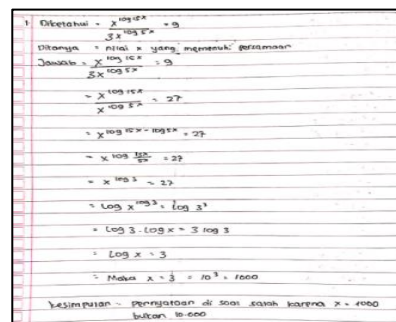 1. Diketahui = x^log 15x / 3x^log 5x = 9
Ditanya = nilai x yang memenuhi persamaan
Jawab = x^log 15x / 3x^log 5x = 9
= x^log 15x / x^log 5x = 27
= x^log 15x - log 5x = 27
= x log 15x/5x = 27
= x^log 3 = 27
= Log x^log 3 = log 3³
= Log 3 . Log x = 3 log 3
= Log x = 3
= Maka x = 3 = 10³ = 1000
kesimpulan = Pernyataan di soal salah karena x = 1000
bukan 10.000